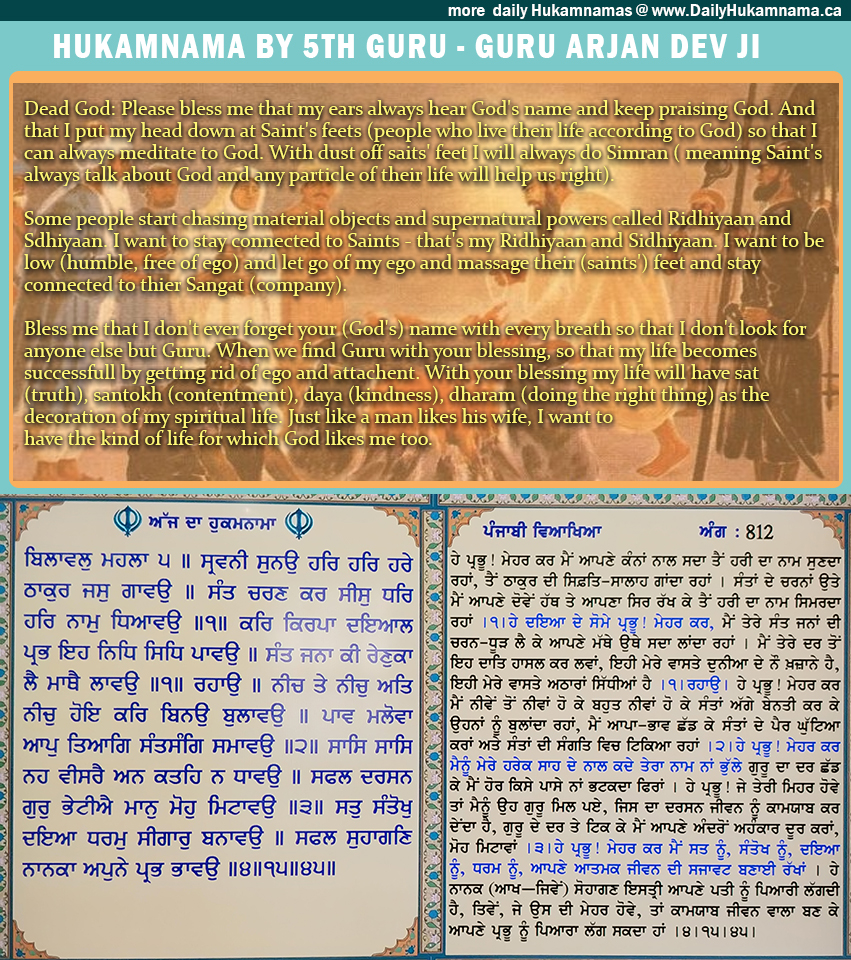 more daily Hukamnamas @ www.DailyHukamnama.ca
HUKAMNAMA BY 5TH GURU - GURU ARJAN DEV JI
Dead God: Please bless me that my ears always hear God's name and keep praising God. And
that I put my head down at Saint's feets (people who live their life according to God) so that I
can always meditate to God. With dust off saits' feet I will always do Simran ( meaning Saint's
always talk about God and any particle of their life will help us right).
Some people start chasing material objects and supernatural powers called Ridhiyaan and
Sdhiyaan. I want to stay connected to Saints - that's my Ridhiyaan and Sidhiyaan. I want to be
low (humble, free of ego) and let go of my ego and massage their (saints') feet and stay
connected to thier Sangat (company).
Bless me that I don't ever forget your (God's) name with every breath so that I don't look for
anyone else but Guru. When we find Guru with your blessing, so that my life becomes
successfull by getting rid of ego and attachent. With your blessing my life will have sat
(truth), santokh (contentment), daya (kindness), dharam (doing the right thing) as the
decoration of my spiritual life. Just like a man likes his wife, I want to
have the kind of life for which God likes me too.
ਅੱਜ ਦਾ ਹੁਕਮਨਾਮਾ
ਬਿਲਾਵਲੁ ਮਹਲਾ ੫ ॥ ਸ੍ਰਵਨੀ ਸੁਨਉ ਹਰਿ ਹਰਿ ਹਰੇ
ਠਾਕੁਰ ਜਸੁ ਗਾਵਉ ॥ ਸੰਤ ਚਰਣ ਕਰ ਸੀਸੁ ਧਰਿ
ਹਰਿ ਨਾਮੁ ਧਿਆਵਉ ॥੧॥ ਕਰਿ ਕਿਰਪਾ ਦਇਆਲ
ਪ੍ਰਭ ਇਹ ਨਿਧਿ ਸਿਧਿ ਪਾਵਉ ॥ ਸੰਤ ਜਨਾ ਕੀ ਰੇਣੁਕਾ
ਲੈ ਮਾਥੈ ਲਾਵਉ ॥੧॥ ਰਹਾਉ ॥ ਨੀਚ ਤੇ ਨੀਚੁ ਅਤਿ
ਨੀਚੁ ਹੋਇ ਕਰਿ ਬਿਨਉ ਬੁਲਾਵਉ ॥ ਪਾਵ ਮਲੋਵਾ
ਆਪੁ ਤਿਆਗਿ ਸੰਤਸੰਗਿ ਸਮਾਵਉ ॥੨॥ ਸਾਸਿ ਸਾਸਿ
ਨਹ ਵੀਸਰੈ ਅਨ ਕਤਹਿ ਨ ਧਾਵਉ ॥ ਸਫਲ ਦਰਸਨ
ਗੁਰੁ ਭੇਟੀਐ ਮਾਨੁ ਮੋਹੁ ਮਿਟਾਵਉ ॥੩॥ ਸਤੁ ਸੰਤੋਖੁ
ਦਇਆ ਧਰਮੁ ਸੀਗਾਰੁ ਬਨਾਵਉ ॥ ਸਫਲ ਸੁਹਾਗਣਿ
ਨਾਨਕਾ ਅਪੁਨੇ ਪ੍ਰਭ ਭਾਵਉ ॥੪॥੧੫॥੪੫॥
ਪੰਜਾਬੀ ਵਿਆਖਿਆ ਅੰਗ : 812
ਹੇ ਪ੍ਰਭੂ! ਮੇਹਰ ਕਰ ਮੈਂ ਆਪਣੇ ਕੰਨਾਂ ਨਾਲ ਸਦਾ ਤੈਂ ਹਰੀ ਦਾ ਨਾਮ ਸੁਣਦਾ
ਰਹਾਂ, ਤੈਂ ਠਾਕੁਰ ਦੀ ਸਿਫ਼ਤਿ-ਸਾਲਾਹ ਗਾਂਦਾ ਰਹਾਂ । ਸੰਤਾਂ ਦੇ ਚਰਨਾਂ ਉਤੇ
ਮੈਂ ਆਪਣੇ ਦੋਵੇਂ ਹੱਥ ਤੇ ਆਪਣਾ ਸਿਰ ਰੱਖ ਕੇ ਤੈਂ ਹਰੀ ਦਾ ਨਾਮ ਸਿਮਰਦਾ
ਰਹਾਂ ।੧।ਹੇ ਦਇਆ ਦੇ ਸੋਮੇ ਪ੍ਰਭੂ! ਮੇਹਰ ਕਰ, ਮੈਂ ਤੇਰੇ ਸੰਤ ਜਨਾਂ ਦੀ
ਚਰਨ-ਧੂੜ ਲੈ ਕੇ ਆਪਣੇ ਮੱਥੇ ਉਥੇ ਸਦਾ ਲਾਂਦਾ ਰਹਾਂ । ਮੈਂ ਤੇਰੇ ਦਰ ਤੋਂ
ਇਹ ਦਾਤਿ ਹਾਸਲ ਕਰ ਲਵਾਂ, ਇਹੀ ਮੇਰੇ ਵਾਸਤੇ ਦੁਨੀਆ ਦੇ ਨੌ ਖ਼ਜ਼ਾਨੇ ਹੈ,
ਇਹੀ ਮੇਰੇ ਵਾਸਤੇ ਅਠਾਰਾਂ ਸਿੱਧੀਆਂ ਹੈ ।੧।ਰਹਾਉ। ਹੇ ਪ੍ਰਭੂ! ਮੇਹਰ ਕਰ
ਮੈਂ ਨੀਵੇਂ ਤੋਂ ਨੀਵਾਂ ਹੋ ਕੇ ਬਹੁਤ ਨੀਵਾਂ ਹੋ ਕੇ ਸੰਤਾਂ ਅੱਗੇ ਬੇਨਤੀ ਕਰ ਕੇ
ਉਹਨਾਂ ਨੂੰ ਬੁਲਾਂਦਾ ਰਹਾਂ, ਮੈਂ ਆਪਾ-ਭਾਵ ਛੱਡ ਕੇ ਸੰਤਾਂ ਦੇ ਪੈਰ ਘੁੱਟਿਆ
ਕਰਾਂ ਅਤੇ ਸੰਤਾਂ ਦੀ ਸੰਗਤਿ ਵਿਚ ਟਿਕਿਆ ਰਹਾਂ ।੨।ਹੇ ਪ੍ਰਭੂ! ਮੇਹਰ ਕਰ
ਮੈਨੂੰ ਮੇਰੇ ਹਰੇਕ ਸਾਹ ਦੇ ਨਾਲ ਕਦੇ ਤੇਰਾ ਨਾਮ ਨਾਂ ਭੁੱਲੇ ਗੁਰੂ ਦਾ ਦਰ ਛੱਡ
ਕੇ ਮੈਂ ਹੋਰ ਕਿਸੇ ਪਾਸੇ ਨਾਂ ਭਟਕਦਾ ਫਿਰਾਂ । ਹੇ ਪ੍ਰਭੂ! ਜੇ ਤੇਰੀ ਮਿਹਰ ਹੋਵੇ
ਤਾਂ ਮੈਨੂੰ ਉਹ ਗੁਰੂ ਮਿਲ ਪਏ, ਜਿਸ ਦਾ ਦਰਸਨ ਜੀਵਨ ਨੂੰ ਕਾਮਯਾਬ ਕਰ
ਦੇਂਦਾ ਹੈ, ਗੁਰੂ ਦੇ ਦਰ ਤੇ ਟਿਕ ਕੇ ਮੈਂ ਆਪਣੇ ਅੰਦਰੋਂ ਅਹੰਕਾਰ ਦੂਰ ਕਰਾਂ,
ਮੋਹ ਮਿਟਾਵਾਂ ।੩।ਹੇ ਪ੍ਰਭੂ! ਮੇਹਰ ਕਰ ਮੈਂ ਸਤ ਨੂੰ, ਸੰਤੋਖ ਨੂੰ, ਦਇਆ
ਨੂੰ, ਧਰਮ ਨੂੰ, ਆਪਣੇ ਆਤਮਕ ਜੀਵਨ ਦੀ ਸਜਾਵਟ ਬਣਾਈ ਰੱਖਾਂ । ਹੇ
ਨਾਨਕ (ਆਖ—ਜਿਵੇਂ) ਸੋਹਾਗਣ ਇਸਤ੍ਰੀ ਆਪਣੇ ਪਤੀ ਨੂੰ ਪਿਆਰੀ ਲੱਗਦੀ
ਹੈ, ਤਿਵੇਂ, ਜੇ ਉਸ ਦੀ ਮੇਹਰ ਹੋਵੇ, ਤਾਂ ਕਾਮਯਾਬ ਜੀਵਨ ਵਾਲਾ ਬਣ ਕੇ
ਆਪਣੇ ਪ੍ਰਭੂ ਨੂੰ ਪਿਆਰਾ ਲੱਗ ਸਕਦਾ ਹਾਂ ।੪।੧੫।੪੫।